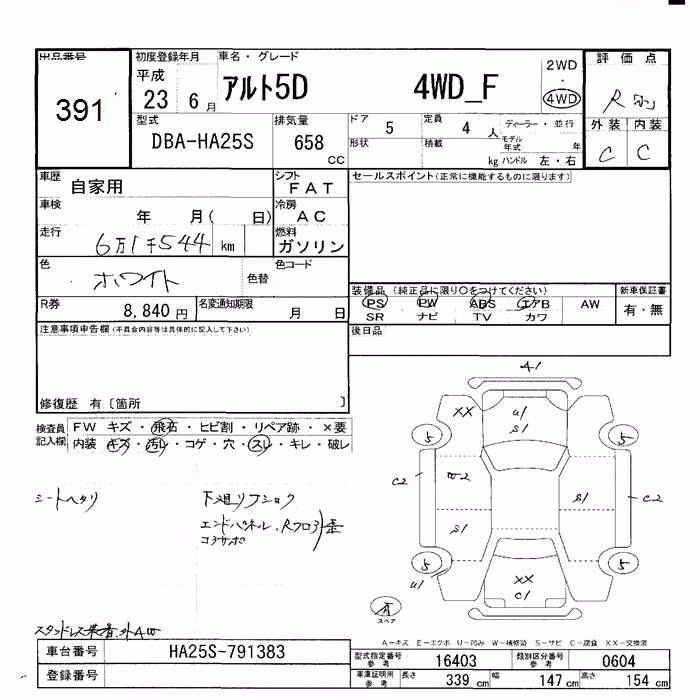 出品番号
391
初度登録年月
平成
23 6 月
車名・グレード
アルト5D 4WD_F
2WD
・
4WD
評価点
R
外装 内装
C C
型式
DBA-HA25S
排気量
658
CC
ドア
5
定員
4 人
ディーラー・並行
モデル
年式 年
形状
積載
kg
ハンドル 左・右
車歴
自家用
シフト
FAT
セールスポイント(正常に機能するものに限ります)
車検
年 月( 日)
冷房
AC
走行
6万1千544 km
燃料
ガソリン
色
ホワイト
色替
色コード
装備品 (純正品に限り○をつけてください)
新車保証書
PS PW ABS エアB AW
有・無
SR ナビ TV カワ
R券
8,840 円
名変通知期限
月 日
後日品
注意事項申告欄(不具合内容等は具体的に記入して下さい)
修復歴 有〔箇所 〕
検査員
記入欄
FW キズ・飛石・ヒビ割・リペア跡・×要
内装 キズ・汚レ・コゲ・穴・スレ・キレ・破レ
シートヘタリ
下廻リフショク
エンドパネル、Rフロア歪
コアサポ
A1
XX U1
S1
5 5
C2 W2 S1 C2
S1
5 5
U1 XX
C1
有
スペア
スタッドレス装着
A-キズ E-エクボ U-凹み W-補修跡 S-サビ C-腐食 XX-交換済
車台番号
HA25S-791383
登録番号
型式指定番号
参考
16403
類別区分番号
参考
0604
車庫証明用
参考
長さ
339 cm
幅
147 cm
高さ
154 cm